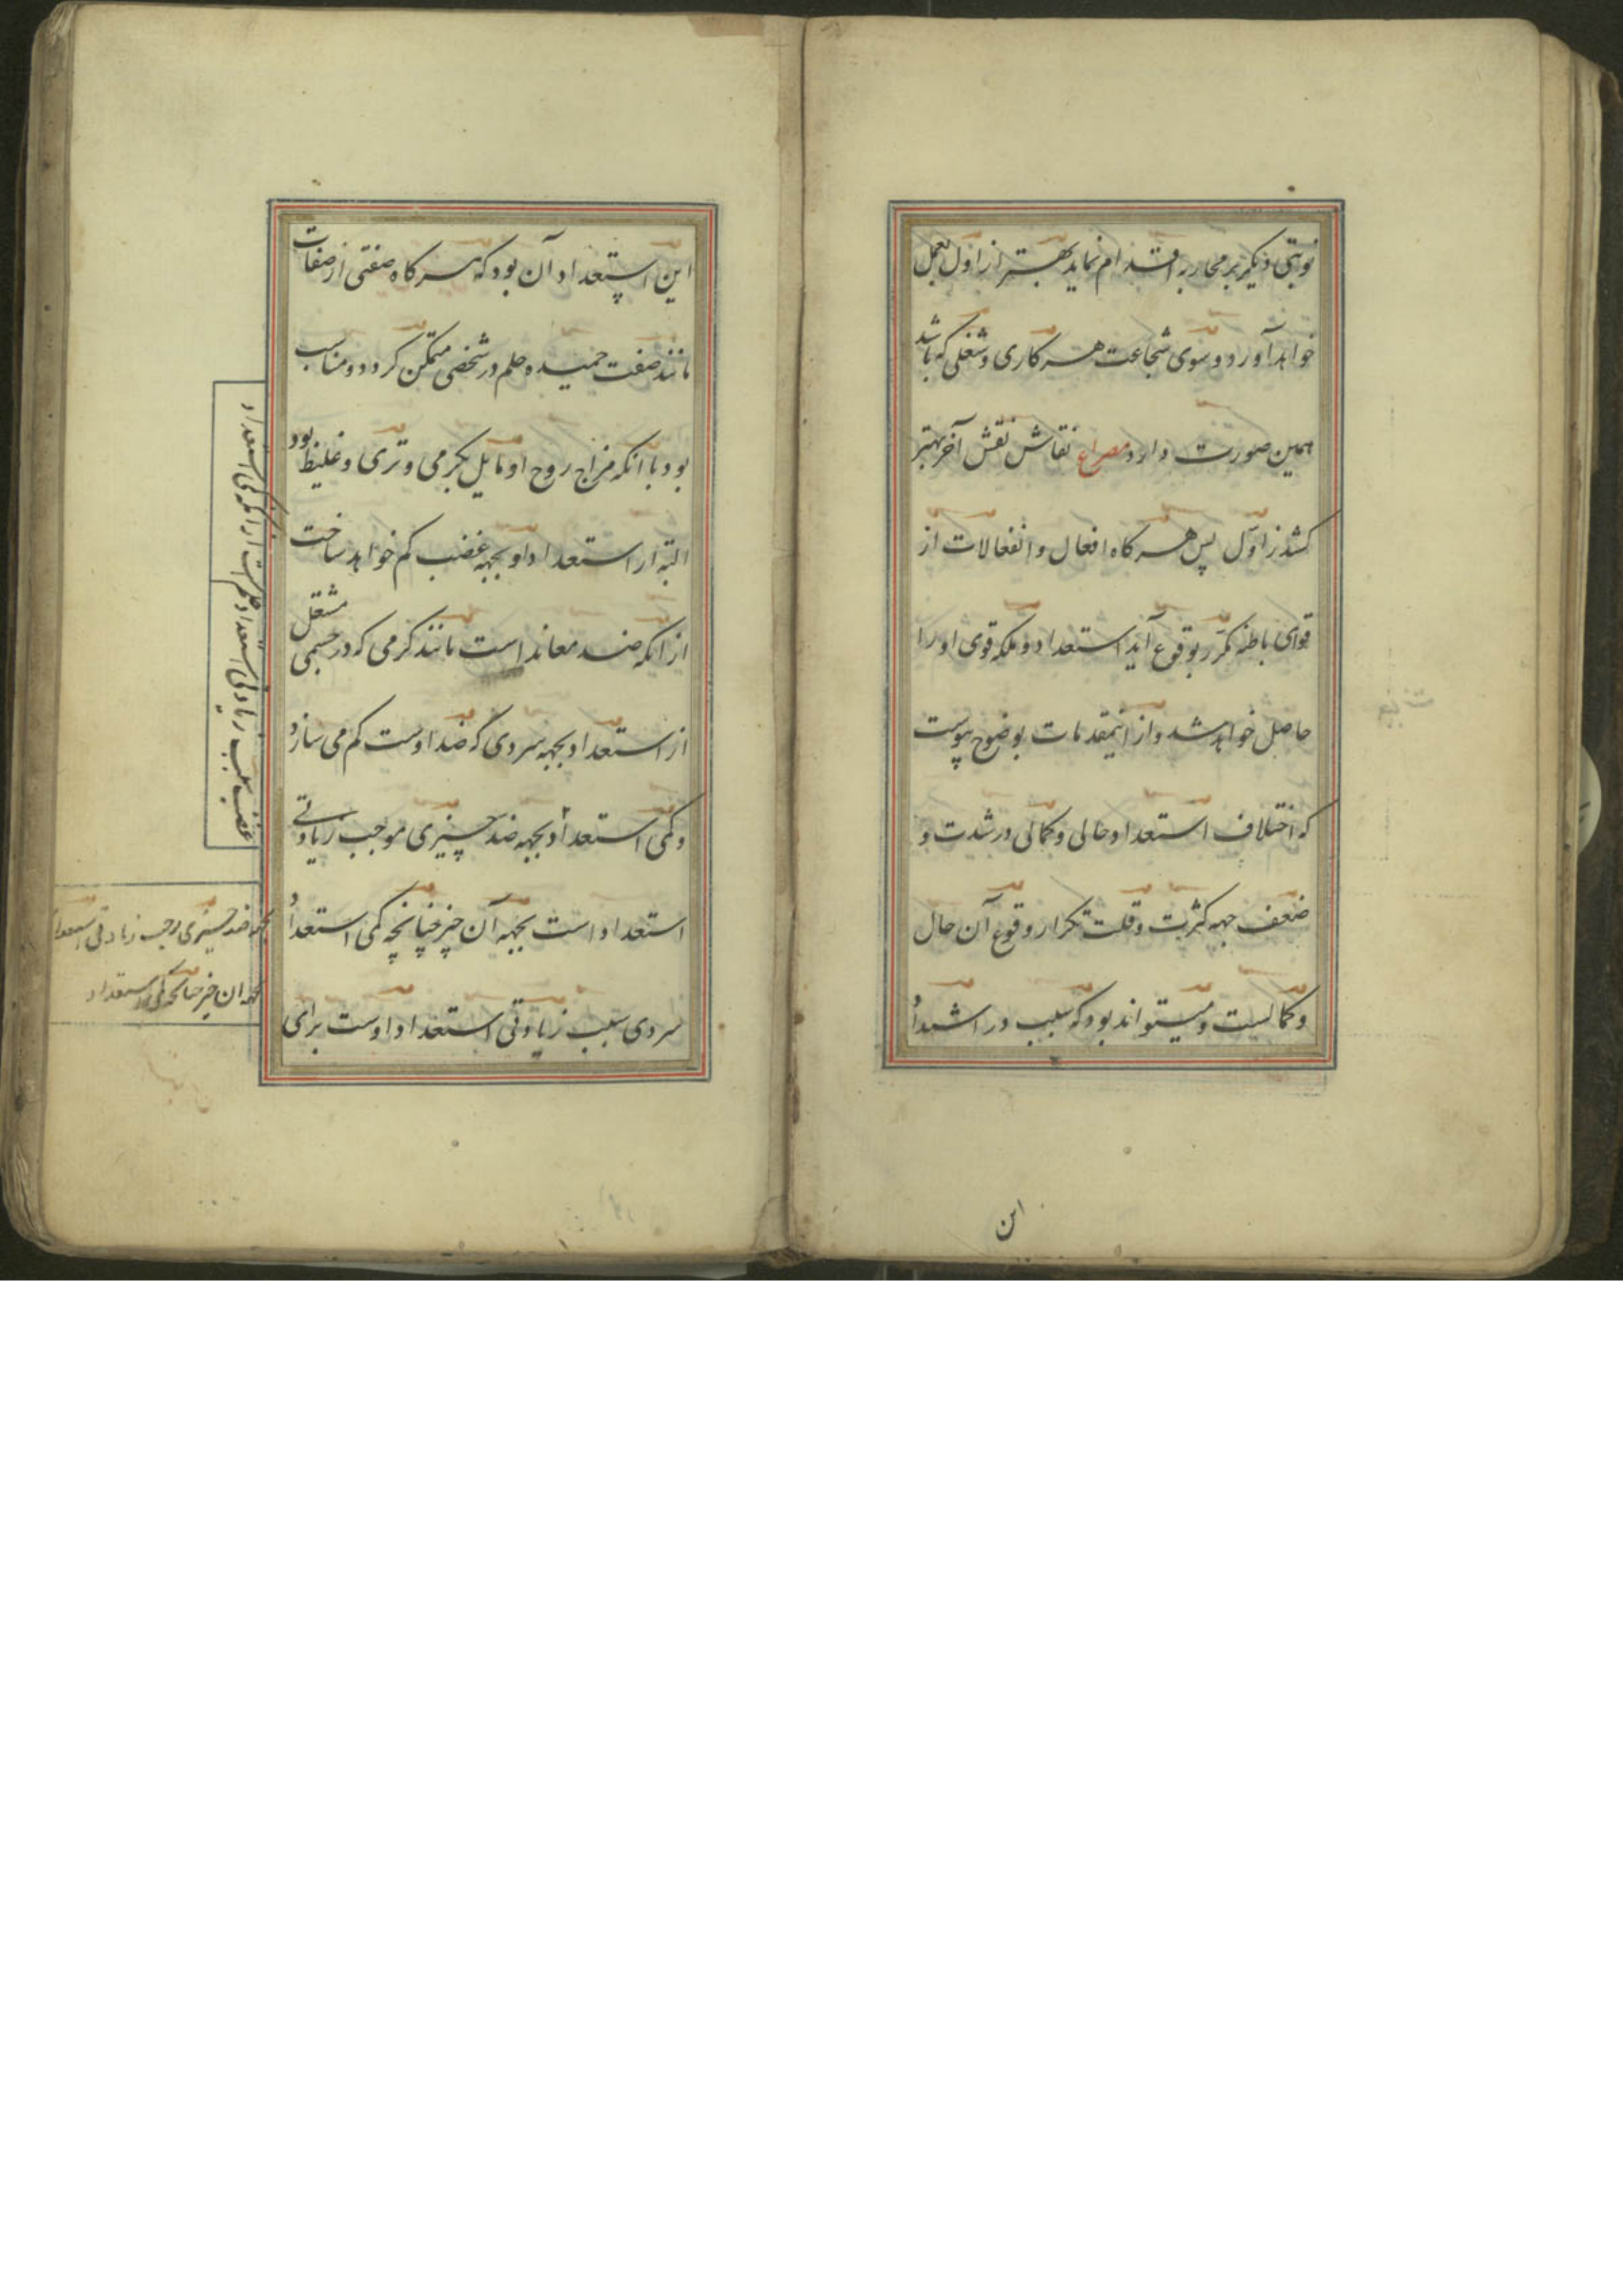 نوبتی دیکر بر محاربه اقدام نماید بهتر از اول بعمل
خواهد آورد و سوی شجاعت هر کاری و شغلی که باشد
همین صورت دارد مصراع نقاش نقش آخر بهتر
کشد ز اول پس هر کاه افعال و انفعالات از
قوای باطنه مکرر بوقوع آید استعداد و ملکه قوی او را
حاصل خواهد شد و از اینمقدمات بوضوح پیوست
که اختلاف استعداد حالی و کمالی در شدت و
ضعف جهه کثرت و قلت تکرار وقوع آن حال
و کمالیست و میتواند بود که سبب در اشتداد
این
این استعداد آن بود که هر کاه صفتی از صفات
مانند صفت حمیده حلم در شخصی متمکن کردد و مناسب
بود با انکه مزاج روح او مایل بکرمی و تری و غلیظ بود
البته از استعداد او بجهه غضب کم خواهد ساخت
از انکه ضد معاند است مانند کرمی که در جسمی مشتعل
از استعداد بجهه سردی که ضد اوست کم می سازد
و کمی استعداد بجهه ضد چیزی موجب زیادتی
استعداد است بجهه آن چیز چنانچه کمی استعداد
سردی سبب زیادتی استعداد اوست برای
از انکه کمی استعداد
غضب سبب زیادتی استعداد حلم است
بجهه ضد چیزی موجب زیادتی استعداد
بجهه ان چیز چنانکه کمی استعداد